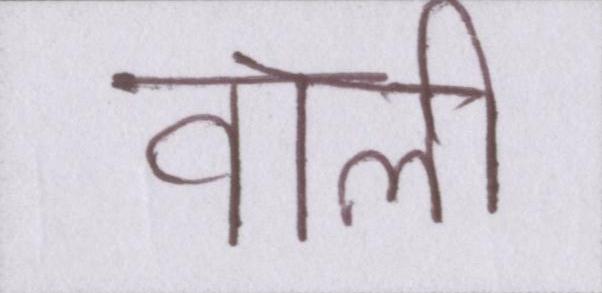 वाली